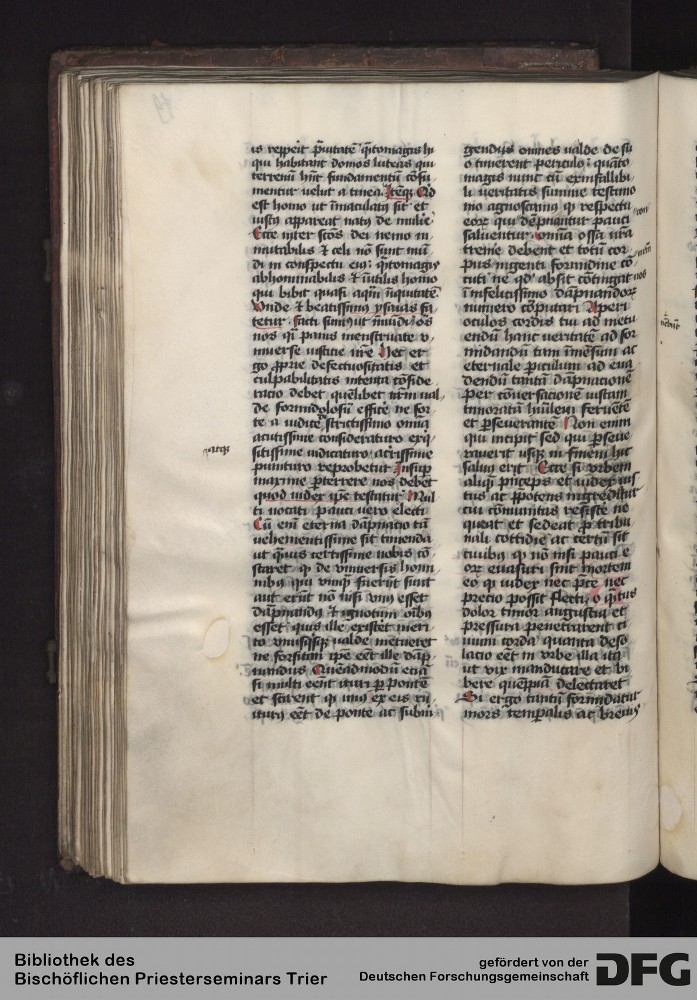 is repperit prauitatē qͣtomagis hi
qui habitant domos luteas qui
terrenū hn̄t fundamentū cōsu
mentur velut a tinea. Itēqꝫ Qd
est homo ut īmaculatꝰ sit et
iustꝰ appareat natꝰ de mulieˀ
Ecce inter scōs dei nemo in
mutabilis ⁊ celi nō sunt mū
di in conspectu eiꝰ qͣtomagis
abhominabilis ⁊ īutilis homo
qui bibit quasi aqm̄ iniquitatē
Vnde ⁊ beatissimꝰ ysaias fa
tetur. facti sumus ut īmūdꝰ os
nos qͥ panis menstruate v
niuerse iusticie nr̄e Hec er
go ꝓprie defectuositatis et
culpabilitatis intenta cōside
racio debet quēlibet nr̄m val
de formidolosū efficeˀ ne for
te a iudice strictissimo omīa
acutissime consideraturo exqͥ
sitissime iudicaturo acrissime
punituro reprobetur Insuꝑ
maxime ꝑterrere nos debet
quod iudex ip̄e testatur Mul
ti vocati pauci vero electi
Cū eni eterna dāpnacio tā
vehementissime sit timenda
ut qͣuis certissime nobis cō
staret qꝫ de vniuersis homi
nibꝰ qui vnqͣꝫ fuerūt sunt
aut erūt nō nisi vnꝰ esset
dāpnandꝰ ⁊ ignotum oībꝰ
esset quis ille existet meri
to vnusqͥsqꝫ valde metueret
ne forsitan ip̄e eēt ille dāp
nandus Quēadmodū eciā
si multi eent ituri ꝑ pontē
et scirent qꝫ vnꝰ ex eis rui
turꝰ eēt de ponte ac subm̄
patqꝫ
gendꝰ omnes valde de su
o timerent periculo: quāto
magis nunc cū ex infallibi
li veritatis summe testimo
nio agnoscamꝰ qꝫ respectu
eoꝝ qui dāpnantur pauci
saluentur omīa ossa nr̄a
tremeˀ debent et totū cor
pus ingenti formidine cō
cuti ne qd̓ absit cōtingat nos
infelicissimo dāpnandoꝝ
numero cōputari Aperi
oculos cordis tui ad metu
endū hanc veritatē ad for
midandū tam īmēsum ac
eternale ꝑiculum ad eua
dendū tantā dāpnacionē
per cōuersacionē iustam
timoratā hūilem feruētē
et ꝑseuerantē Non enim
qui incipit sed qui ꝑseue
rauerit usqꝫ in finem hic
saluꝰ erit Ecce si vrbem
aliqͥ princeps et iudex ius
tus ac p̄potens ingrediatur
cui cōmunitas resisteˀ ne
queat et sedeat ꝓ tribu
nali cottidie ac certū sit
ciuibꝰ qꝫ nō nisi pauci e
oꝝ euasuri sint mortem
eo qꝫ iudex nec p̄ce nec
precio possit flecti, o qͣntus
dolor timor angustia et
pressura penetrarent ci
uium corda quanta deso
lacio eēt in vrbe illa itaˀ
ut vix manducare et bi
bere quēpiā delectaret
Si ergo tantū formidatur
mors temꝑalis ac breuis
Bibliothek des
Bischöflichen Priesterseminars Trier
gefördert von der
Deutschen Forschungsgemeinschaft
DFG